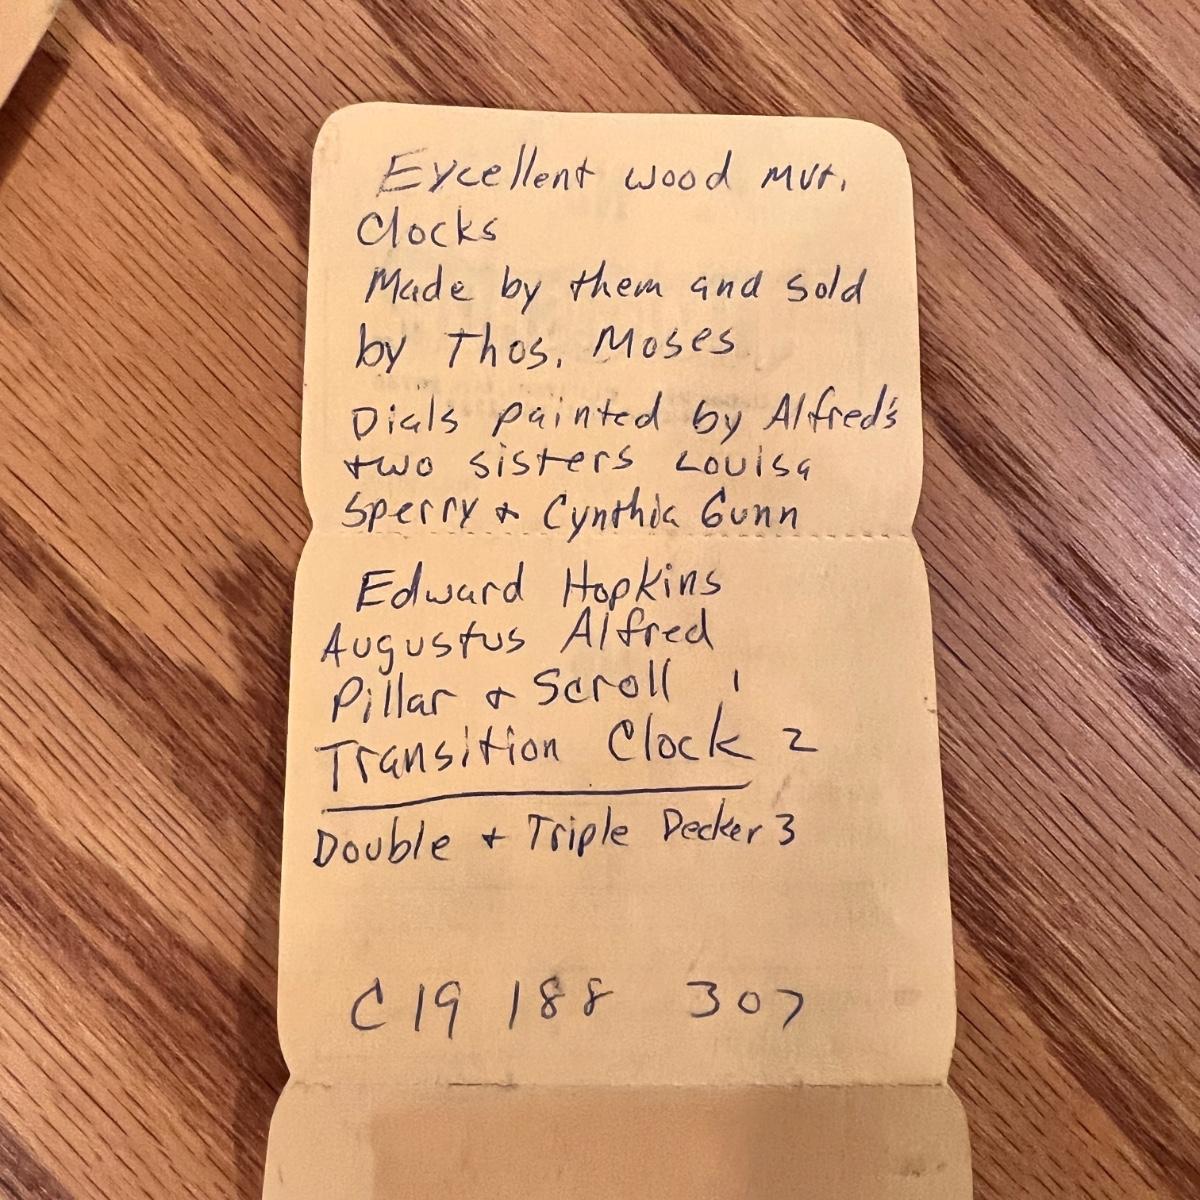 Excellent wood mvt.
Clocks
Made by them and sold
by Thos. Moses
Dials painted by Alfred's
two sisters Louisa
Sperry + Cynthia Gunn
Edward Hopkins
Augustus Alfred
Pillar + Scroll 1
Transition Clock 2
Double + Triple Decker 3
C19 188 307